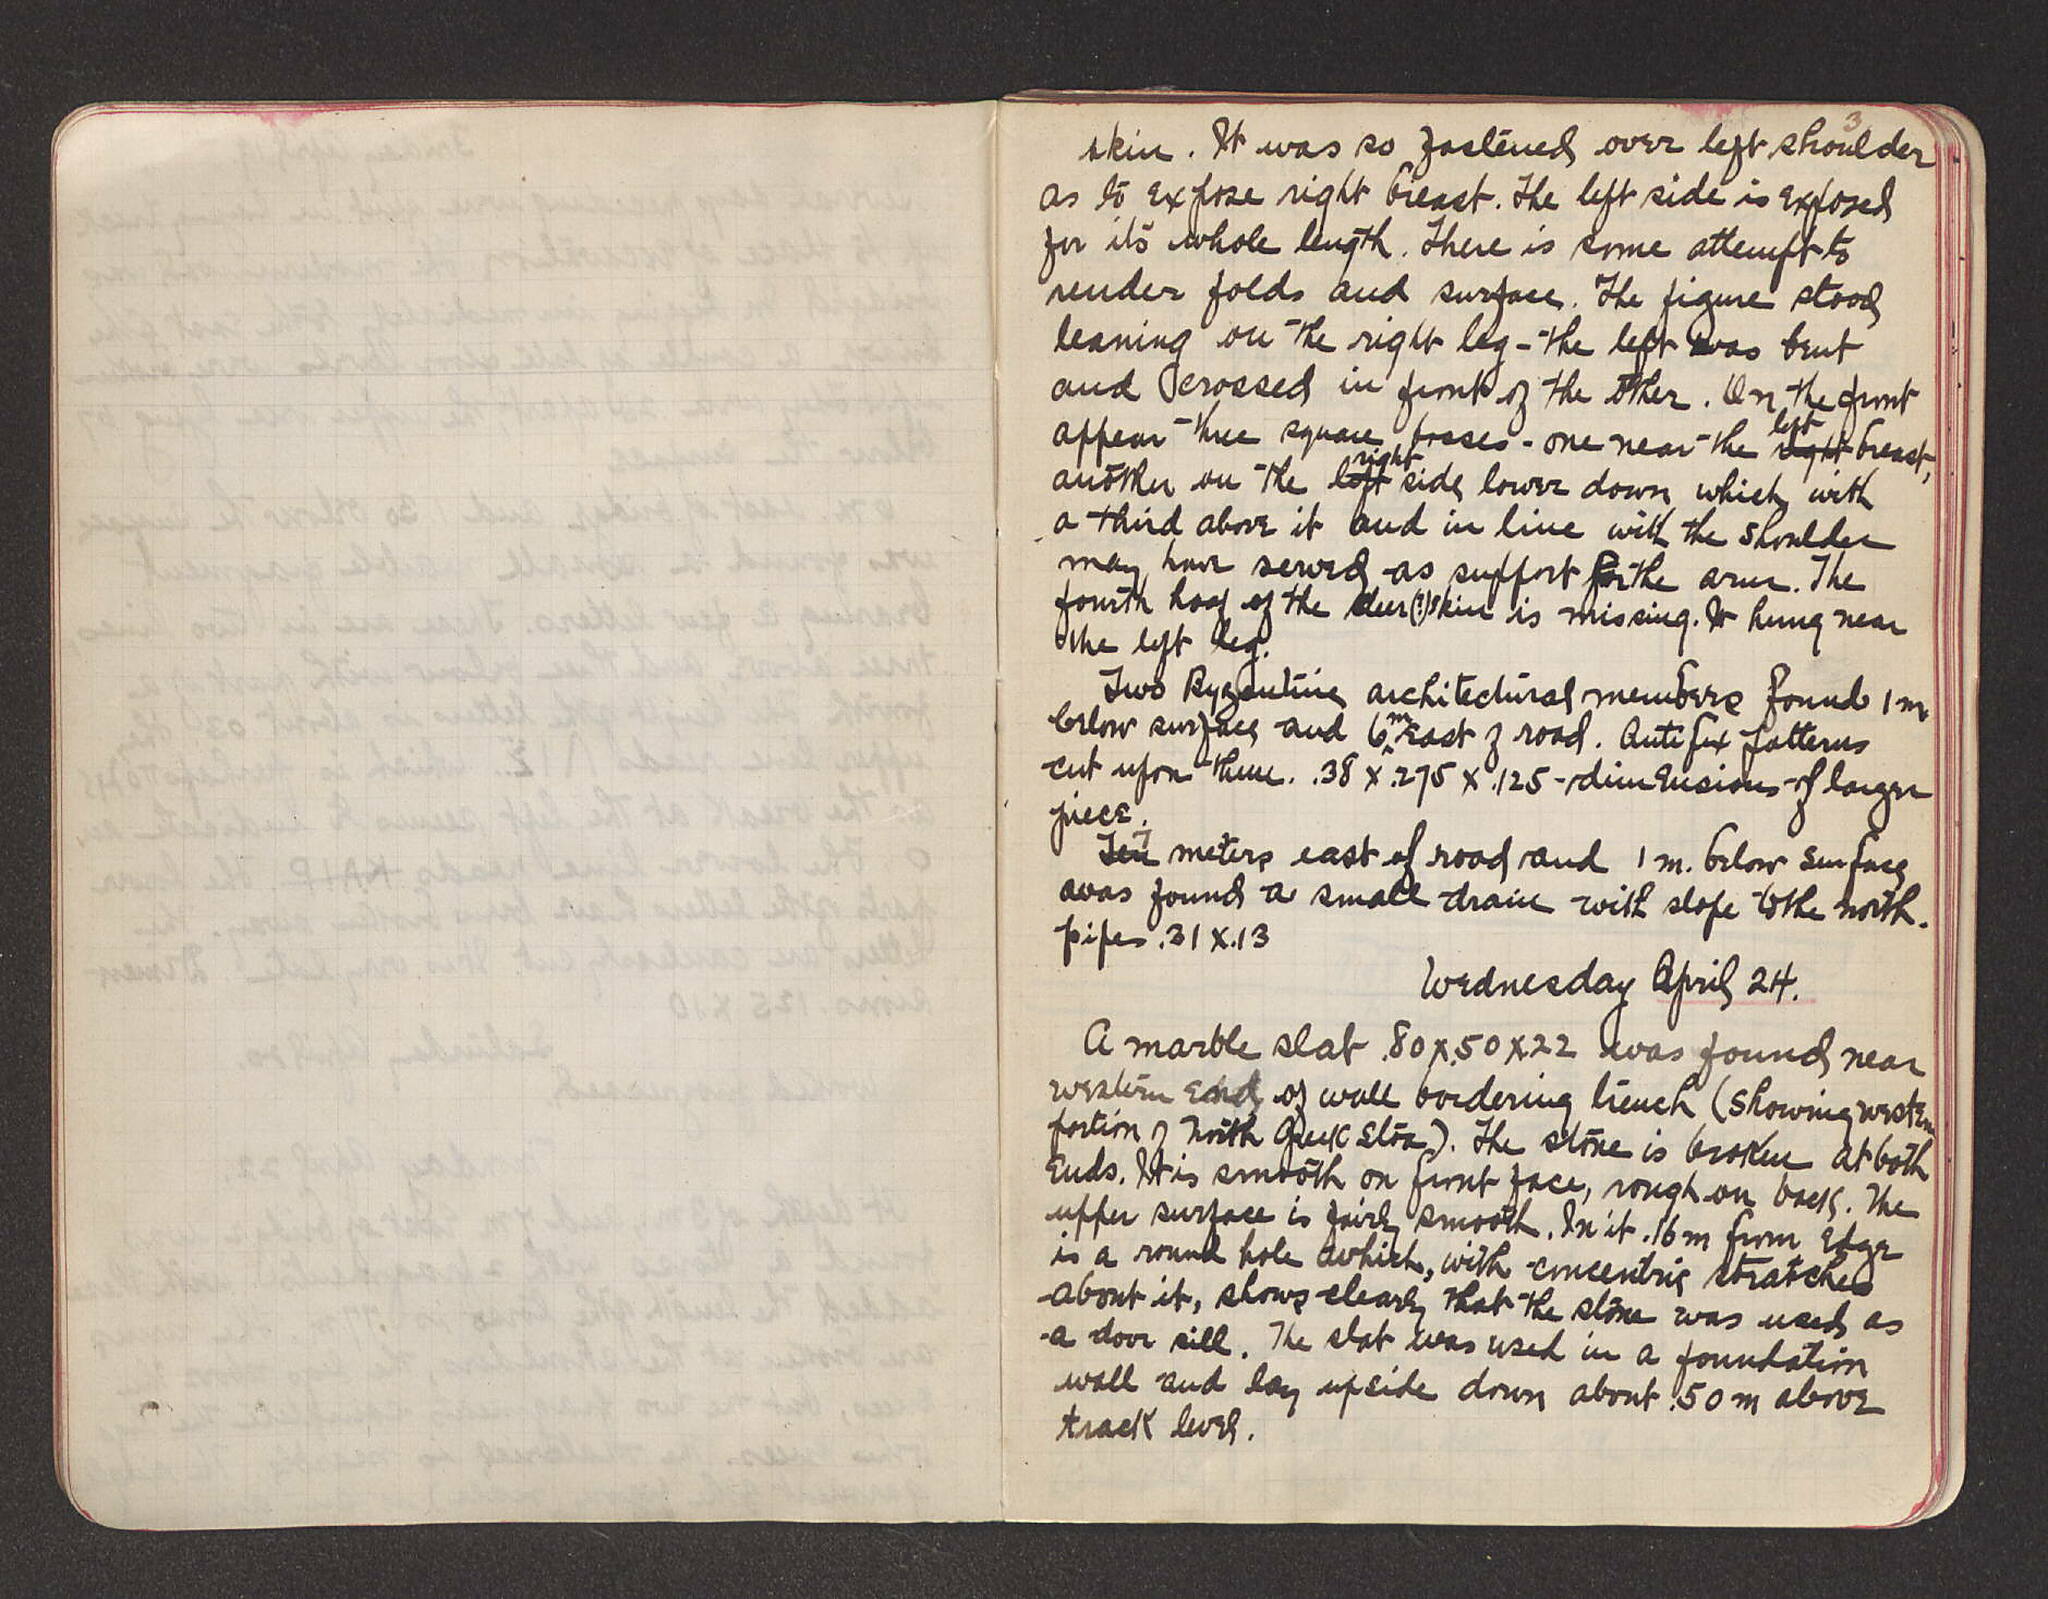 3
skin. It was so fastened over left shoulder
as to expose right breast. The left side is exposed
for its whole length. There is some attempt to
render folds and surface. The figure stood
leaning on the right leg - the left was bent
and crossed in front of the other. On the front
appear three square bosses - one near the right left breast,
another on the left right side lower down which with
a third above it and in line with the shoulder
may have served as support for the arm. The
fourth hoof of the deer(?) skin is missing. It hung near
the left leg.
Two Byzantine architectural members found 1 m
below surface and 6m East of road. Antifix patterns
cut upon them. .38 x .275 x .125 - dimensions of larger
piece.
Ten 7 meters east of road and 1 m. below surface
was found a small drain with slope to the north.
pipes .31 x .13
Wednesday April 24.
A marble slat .80 x .50 x 22 was found near
western end of wall bordering trench (showing western
portion of North Greek Stoa). The stone is broken at both
ends. It is smooth on front face, rough on back. The
upper surface is fairly smooth. In it .16 m from edge
is a round hole which, with concentric stratches
about it, shows clearly that the stone was used as
a door sill. The slat was used in a foundation
wall and lay upside down about .50 m above
track level.